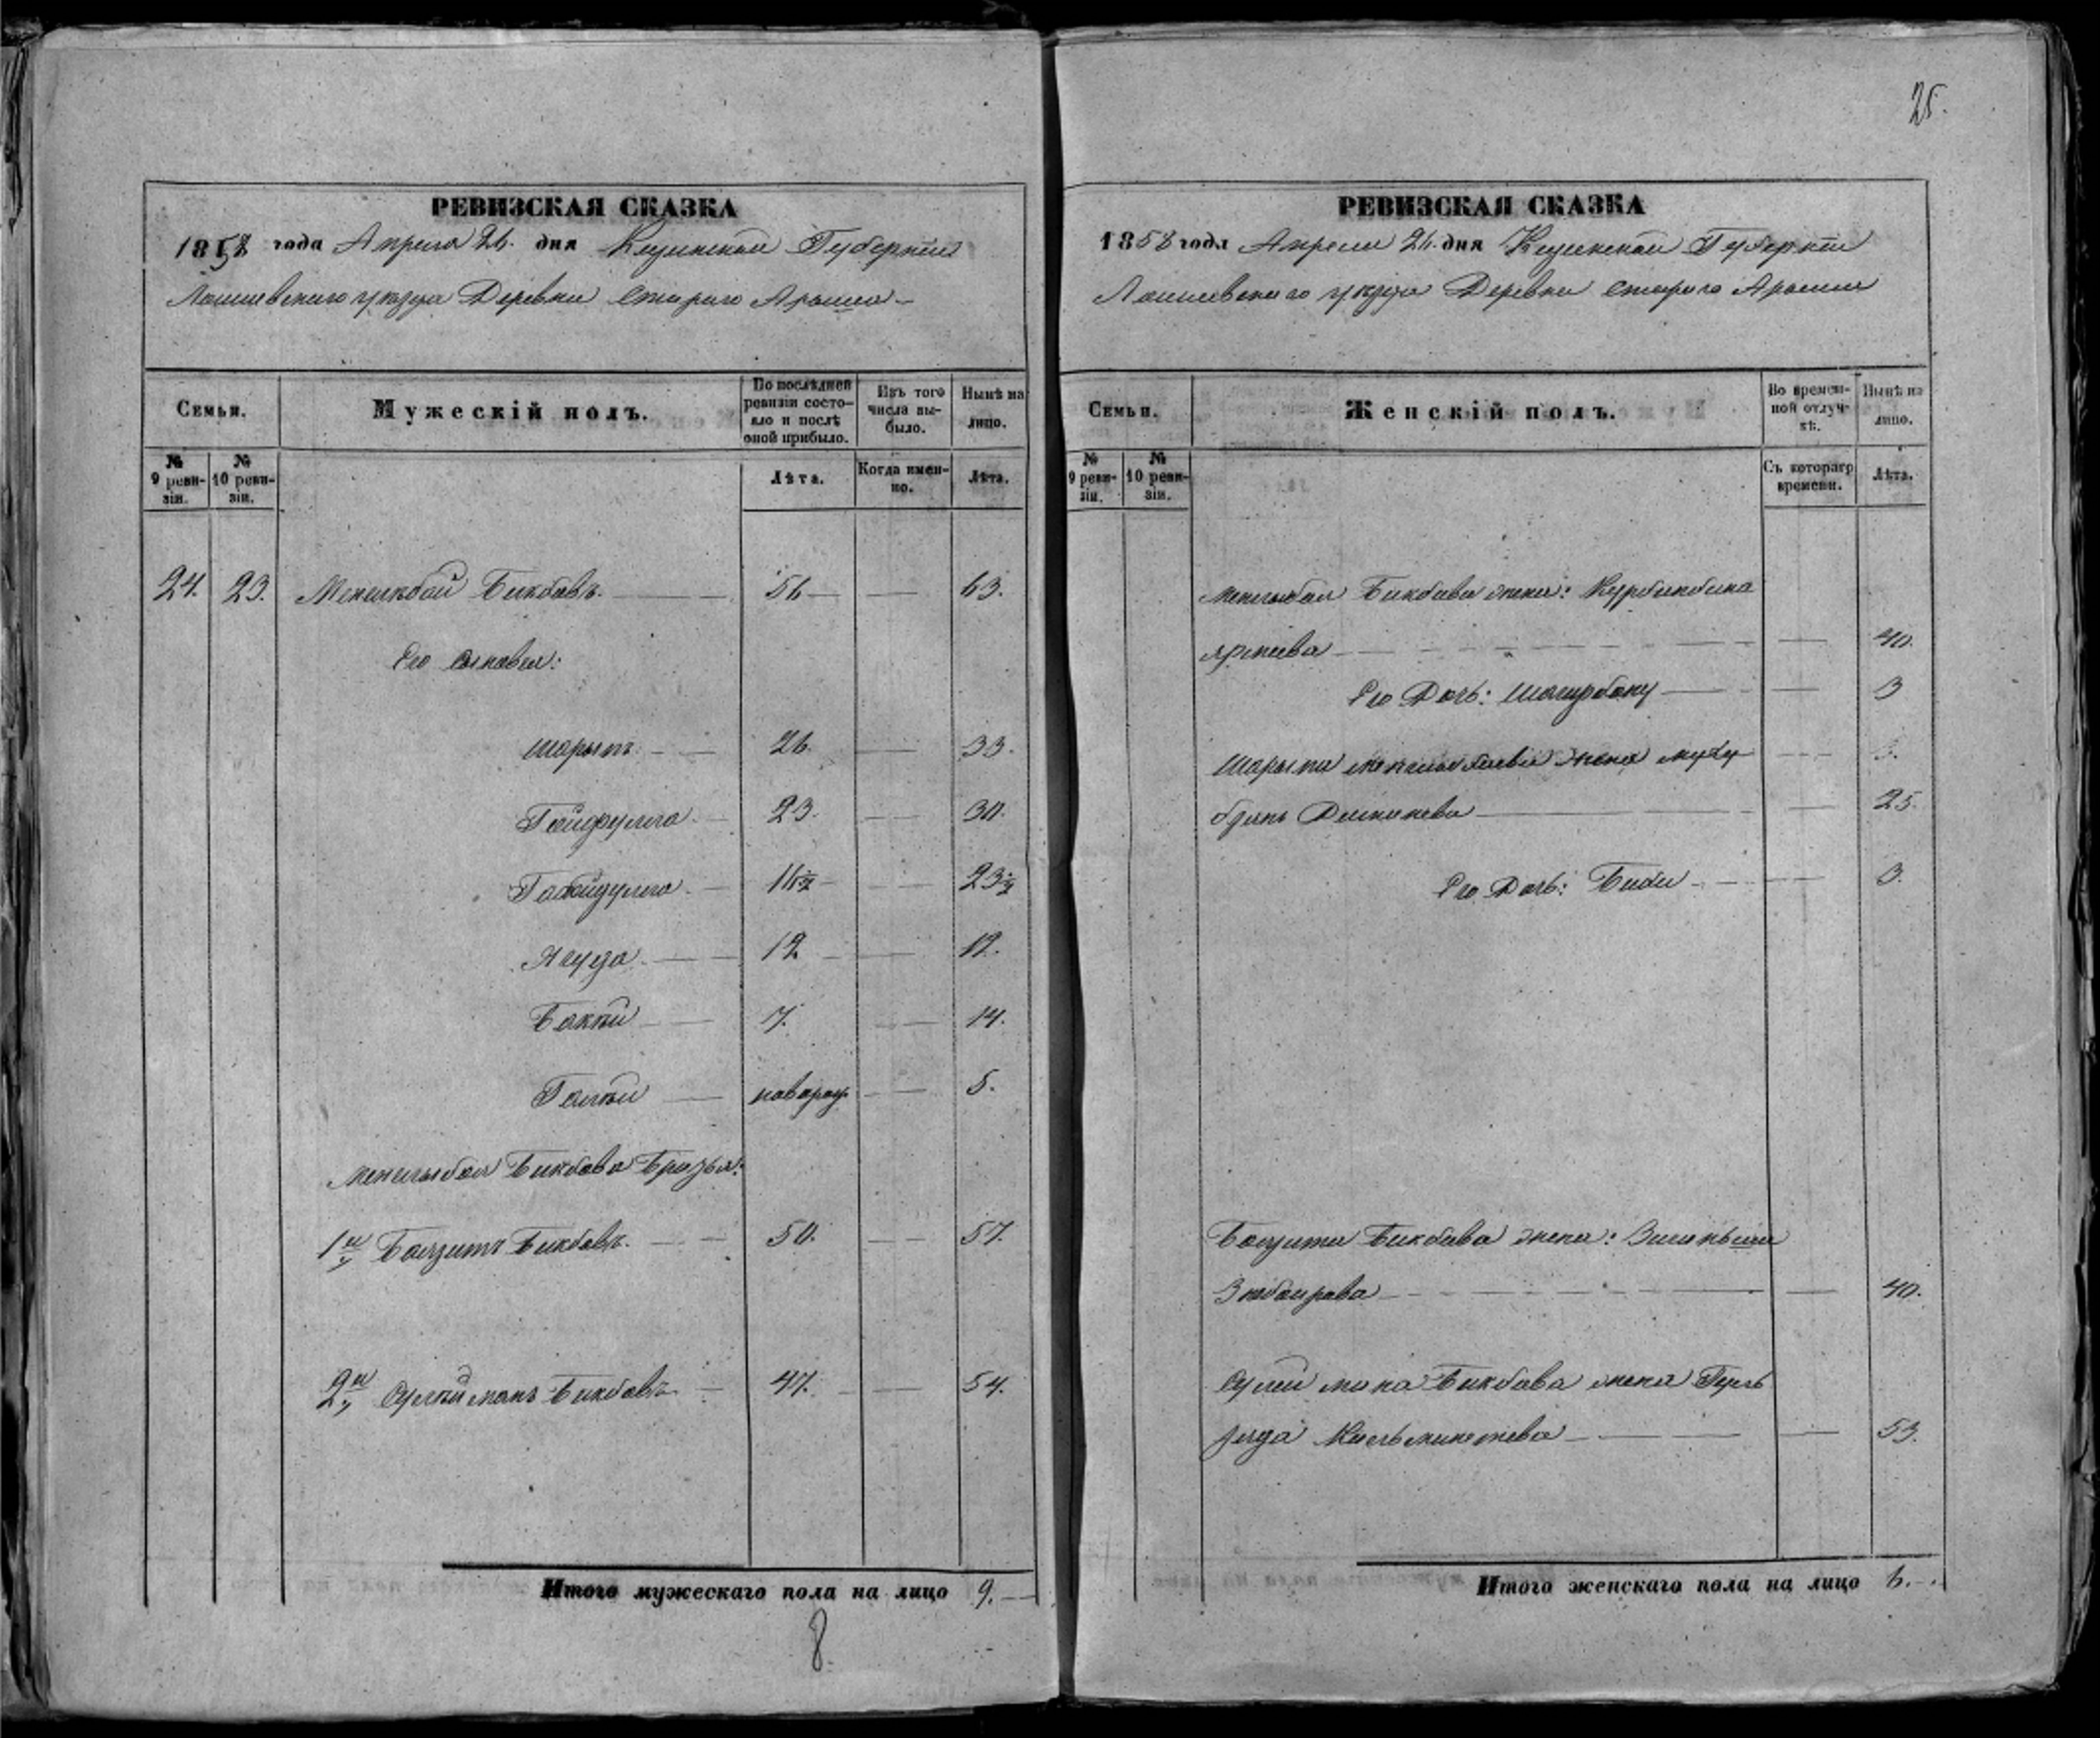 25.
РЕВИЗСКАЯ СКАЗКА
1858 года Апреля 26. дня Казанской Губернии
Лаишевскаго уезда Деревни Стараго Арыша
Семьи.
Мужескій полъ.
По послѣдней ревизіи состояло и послѣ оной прибыло.
Изъ того числа выбыло.
Нынѣ на лицо.
№ 9 ревизіи.
№ 10 ревизіи.
Лѣта.
Когда именно.
Лѣта.
24. 23. Менглибай Бикбавъ. 56 63.
Его сыновья:
Шарыпъ 26. 33.
Гайфулла 23. 30.
Габайдулла 16 1/2 23 1/2
Ягуда 12 19.
Бакки 7. 14.
Галли новорож. 5.
Менглыбая Бикбава Братья:
1й Баязитъ Бикбавъ. 50. 57.
2й Сулейманъ Бикбавъ 47. 54.
Итого мужескаго пола на лицо 9.
8.
РЕВИЗСКАЯ СКАЗКА
1858 года Апреля 26. дня Казанской Губернии
Лаишевскаго уезда Деревни Стараго Арыша
Семьи.
Женскій полъ.
Во временной отлучкѣ.
Нынѣ на лицо.
№ 9 ревизіи.
№ 10 ревизіи.
Съ котораго времени.
Лѣта.
Менглыбая Бикбава жена: Курбанбика
40.
Его Дочь: Шагирбану 3
Шарыпа Менглыбаева жена
25.
Его Дочь: Биби 3.
Баязита Бикбава жена:
Зюбаирова 40.
Сулеймана Бикбава жена Гуль
53.
Итого женскаго пола на лицо 6.